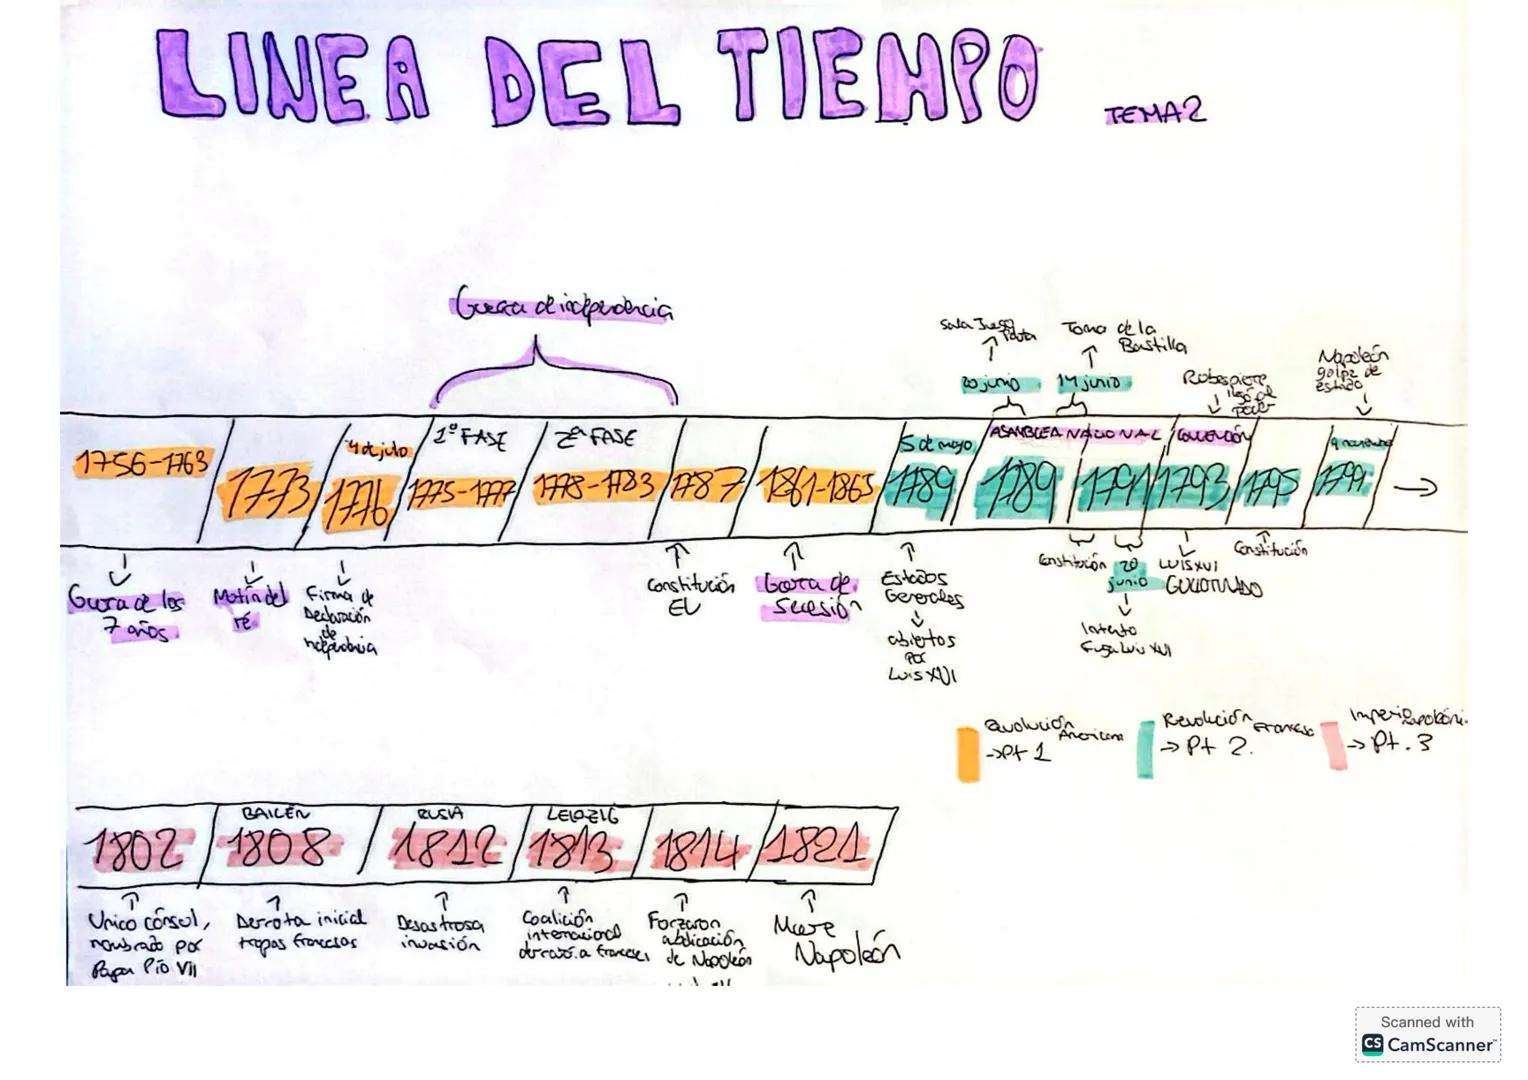 LINEA DEL TIEMPO
TEMA 2
Guerra de independencia
Sala Juego
Pelota
Toma de la
Bastilla
20 junio
14 junio
Robespierre
llegó al
poder
Napoleón
golpe de
estado
1756-1763
1773
4 de julio
1776
1º FASE
1775-1777
2ª FASE
1778-1783
1787
1861-1865
5 de mayo
1789
ASAMBLEA NACIONAL
1789
1791
CONVENCIÓN
1793
1795
9 noviembre
1799
Guerra de los
7 años
Motín del
té
Firma de
Declaración
de
independencia
Constitución
EU
Guerra de
Secesión
Estados
Generales
abiertos
por
Luis XVI
Constitución
20
junio
Intento
Fuga Luis XVI
LUIS XVI
GUILLOTINADO
Constitución
Revolución
Americana
→Pt 1
Revolución
Francesa
→ Pt 2.
→ Pt. 3
1802
BAILÉN
1808
RUSIA
1812
LEIPZIG
1813
1814
1821
Unico cónsul,
nombrado por
Papa Pío VII
Derrota inicial
tropas francesas
Desastrosa
invasión
Coalición
internacional
a franceses
Forzaron
abdicación
de Napoleón
Muere
Napoleón
Scanned with
CS CamScanner